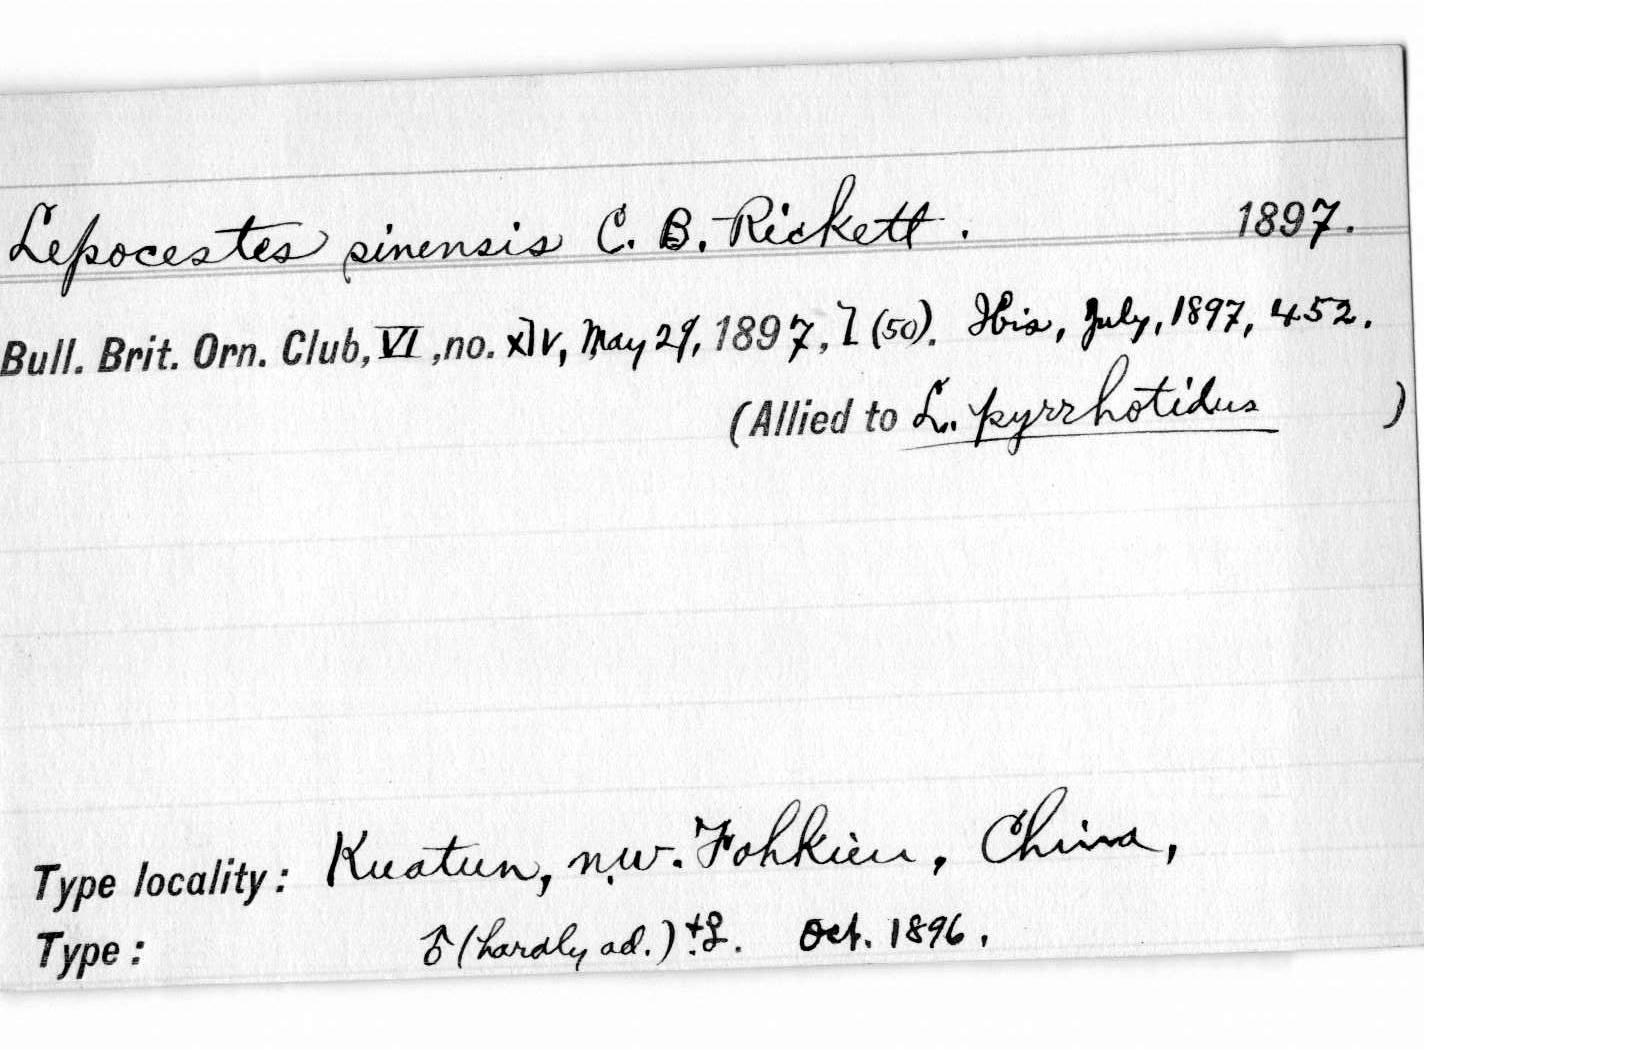 Lepocestes sinensis C. B. Rickett. 1897.
Bull. Brit. Orn. Club, VI, no. xlv, May 29, 1897, l (50). Ibis, July, 1897, 452.
(Allied to L. pyrrhotidus )
Type locality: Kuatun, n.w. Fohkien, China,
Type: ♂ (hardly ad.) + ♀. Oct. 1896.